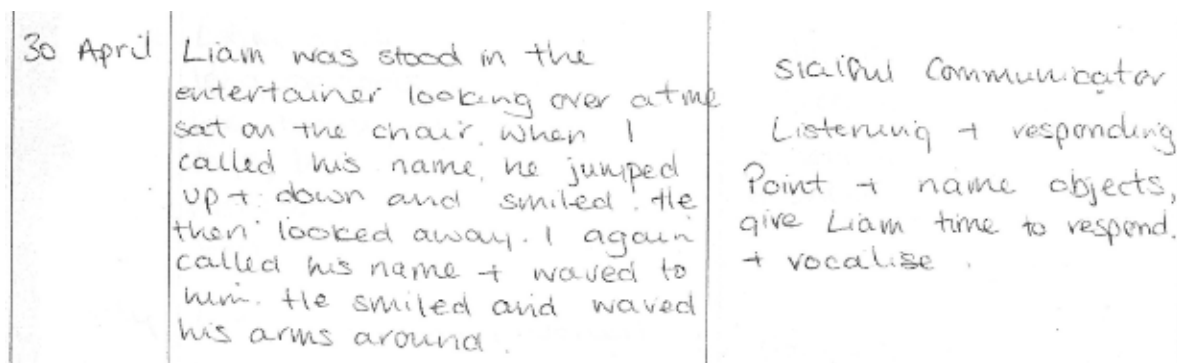 30 April
Liam was stood in the
entertainer looking over at me
sat on the chair. When I
called his name, he jumped
up + down and smiled. He
then looked away. I again
called his name + waved to
him. He smiled and waved
his arms around.
Skilful Communicator
Listening + responding
Point + name objects,
give Liam time to respond.
+ vocalise.